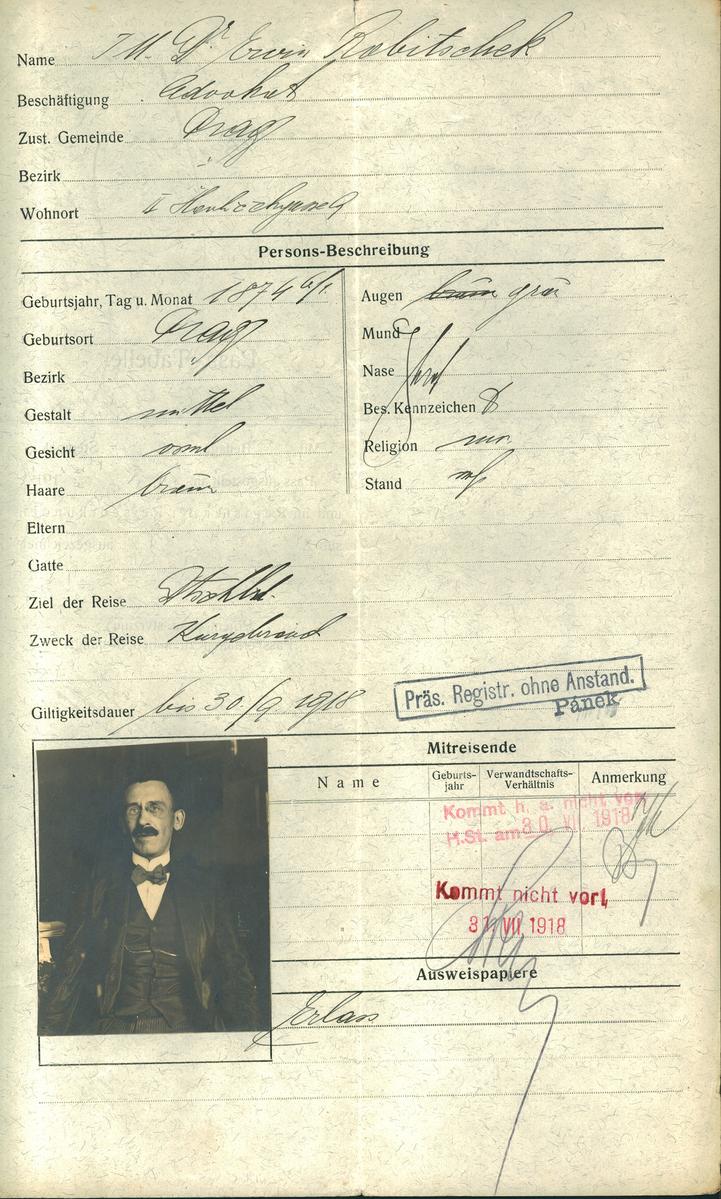 Name JU. Dr. Erwin Robitschek
Beschäftigung Advokat
Zust. Gemeinde Prag
Bezirk
Wohnort II
Persons-Beschreibung
Geburtsjahr, Tag u. Monat 1874 6/1
Geburtsort Prag
Bezirk
Gestalt mittel
Gesicht oval
Haare braun
Augen braun grau
Mund
Nase
Bes. Kennzeichen
Religion
Stand
Eltern
Gatte
Ziel der Reise Dtschld.
Zweck der Reise
Giltigkeitsdauer bis 30./9 1918
Präs. Registr. ohne Anstand.
Pánek
Mitreisende
Name
Geburts-
jahr
Verwandtschafts-
Verhältnis
Anmerkung
Kommt h. a. nicht vor
H.St. am 30. VII. 1918
Kommt nicht vor!
31 VII 1918
Ausweispapiere
Erlass